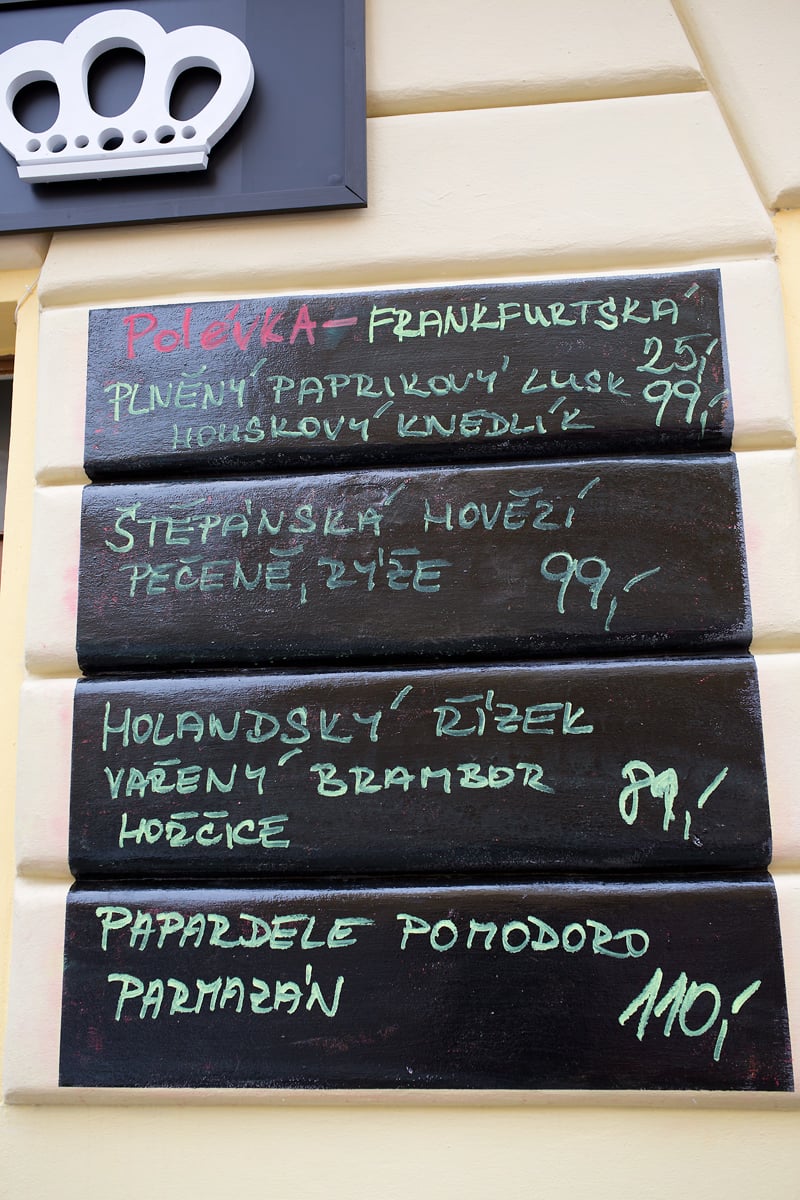 Polévka - FRANKFURTSKÁ
25,-
PLNĚNÝ PAPRIKOVÝ LUSK 99,-
HOUSKOVÝ KNEDLÍK
ŠTĚPÁNSKÁ HOVĚZÍ
PEČENĚ, RÝŽE 99,-
HOLANDSKÝ ŘÍZEK
VAŘENÝ BRAMBOR 89,-
HOŘČICE
PAPARDELE POMODORO
PARMAZÁN 110,-